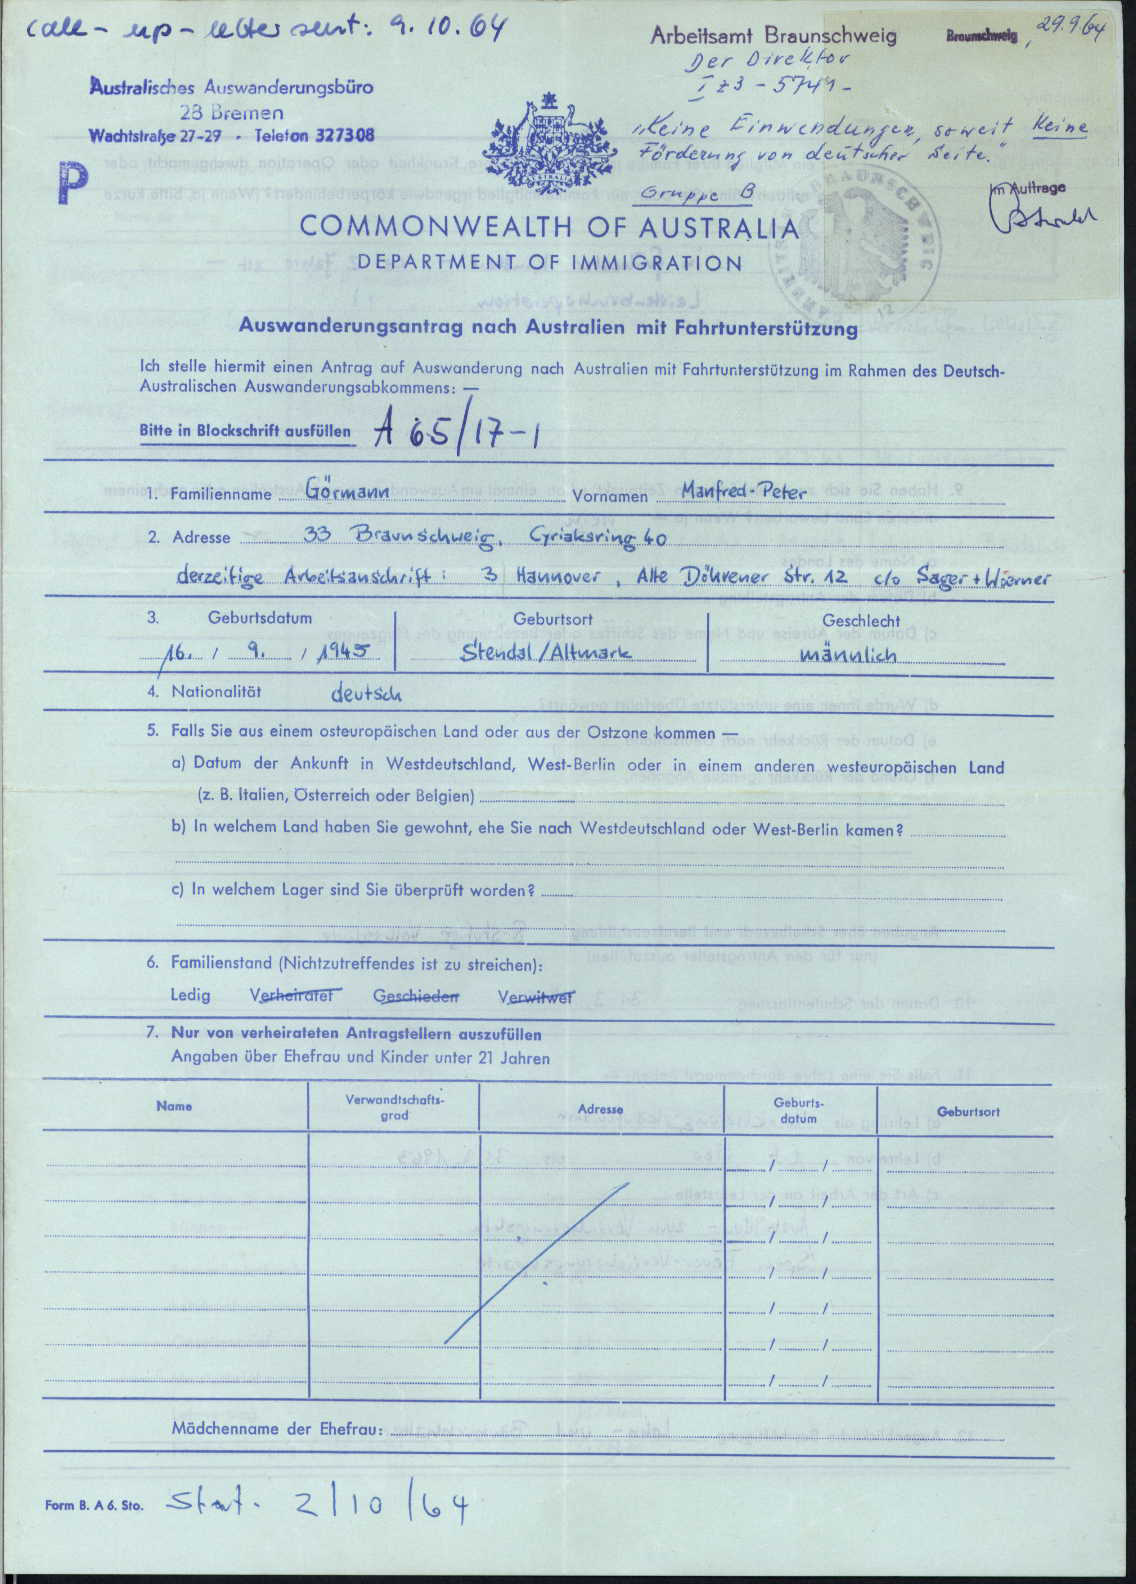 call-up-letter sent: 9.10.64
Arbeitsamt Braunschweig Braunschweig, 29.9.64
Der Direktor
I z3 - 5741 -
"Keine Einwendungen, soweit keine
Förderung von deutscher Seite."
Gruppe B
Im Auftrage
Australisches Auswanderungsbüro
28 Bremen
Wachtstraße 27-29 - Telefon 327308
P
AUSTRALIA
BRAUNSCHWEIG
12
COMMONWEALTH OF AUSTRALIA
DEPARTMENT OF IMMIGRATION
Auswanderungsantrag nach Australien mit Fahrtunterstützung
Ich stelle hiermit einen Antrag auf Auswanderung nach Australien mit Fahrtunterstützung im Rahmen des Deutsch-
Australischen Auswanderungsabkommens: —
Bitte in Blockschrift ausfüllen A 65/17-1
1. Familienname Görmann Vornamen Manfred-Peter
2. Adresse 33 Braunschweig, Cyriaksring 40
derzeitige Arbeitsanschrift: 3 Hannover, Alte Döhrener Str. 12 c/o Sager + Woerner
3. Geburtsdatum Geburtsort Geschlecht
16. / 9. / 1945 Stendal/Altmark männlich
4. Nationalität deutsch
5. Falls Sie aus einem osteuropäischen Land oder aus der Ostzone kommen —
a) Datum der Ankunft in Westdeutschland, West-Berlin oder in einem anderen westeuropäischen Land
(z. B. Italien, Österreich oder Belgien)
b) In welchem Land haben Sie gewohnt, ehe Sie nach Westdeutschland oder West-Berlin kamen?
c) In welchem Lager sind Sie überprüft worden?
6. Familienstand (Nichtzutreffendes ist zu streichen):
Ledig Verheiratet Geschieden Verwitwet
7. Nur von verheirateten Antragstellern auszufüllen
Angaben über Ehefrau und Kinder unter 21 Jahren
Name Verwandtschafts- Adresse Geburts- Geburtsort
grad datum
/ /
/ /
/ /
/ /
/ /
/ /
/ /
Mädchenname der Ehefrau:
Form B. A 6. Sto. Stat. 2/10/64